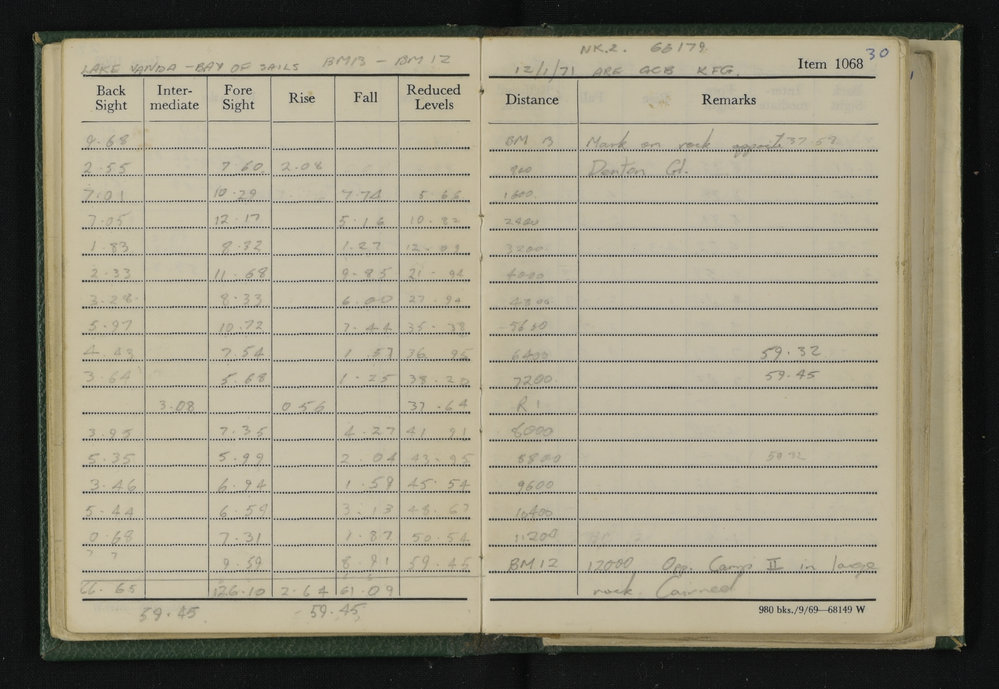 LAKE VANDA - BAY OF SAILS BM13 - BM12
Back Sight Inter-mediate Fore Sight Rise Fall Reduced Levels
9.68
2.55 7.60 2.08
7.01 10.29 7.74 5.66
7.05 12.17 5.16 10.82
1.83 8.32 1.27 12.09
2.33 11.68 9.85 21.94
3.28 8.33 6.00 27.94
5.97 10.72 7.44 35.38
4.43 7.54 1.57 36.95
3.64 5.68 1.25 38.20
3.08 0.56 37.64
3.95 7.35 4.27 41.91
5.35 5.99 2.04 43.95
3.46 6.94 1.59 45.54
5.44 6.59 3.13 48.67
0.68 7.31 1.87 50.54
9.59 8.91 59.45
66.65 126.10 2.64 61.09
59.45 59.45
NK.2. 66179
30
12/1/71 ARE GCB KFG. Item 1068
Distance Remarks
BM 13 Mark on rock opposite 37.59
Denton Gl.
1600
2400
3200
4000
4800
5600
6400 59.32
7200 59.45
R 1
8000
8800 50.32
9600
10400
11200
BM12 12000 Opp. Camp II in large
rock. Cairned
980 bks./9/69—68149 W